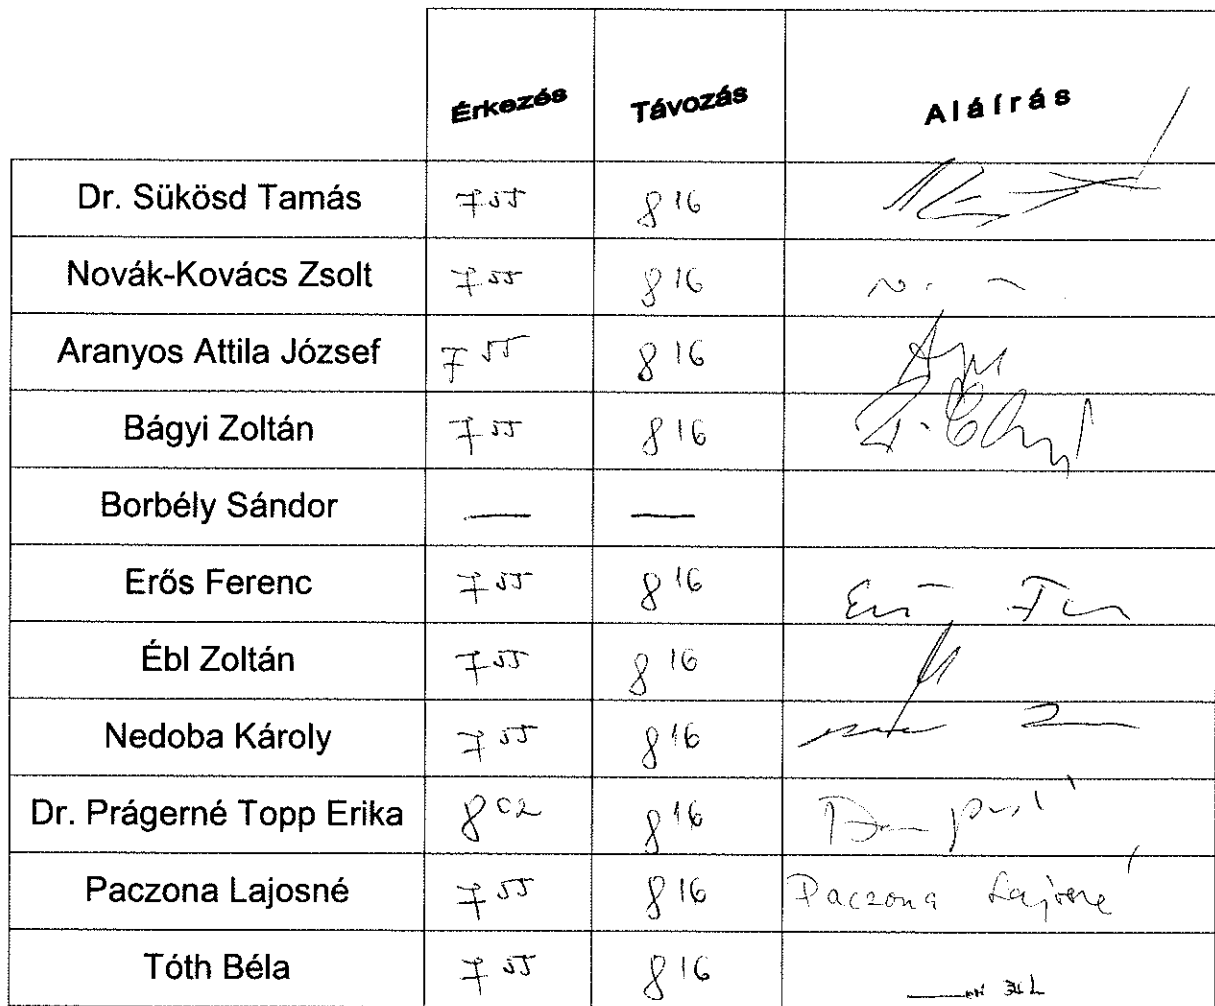 Érkezés Távozás Aláírás
Dr. Sükösd Tamás 7 55 8 16
Novák-Kovács Zsolt 7 55 8 16
Aranyos Attila József 7 55 8 16
Bágyi Zoltán 7 55 8 16
Borbély Sándor — —
Erős Ferenc 7 55 8 16
Ébl Zoltán 7 55 8 16
Nedoba Károly 7 55 8 16
Dr. Prágerné Topp Erika 8 02 8 16
Paczona Lajosné 7 55 8 16 Paczona Lajosné
Tóth Béla 7 55 8 16